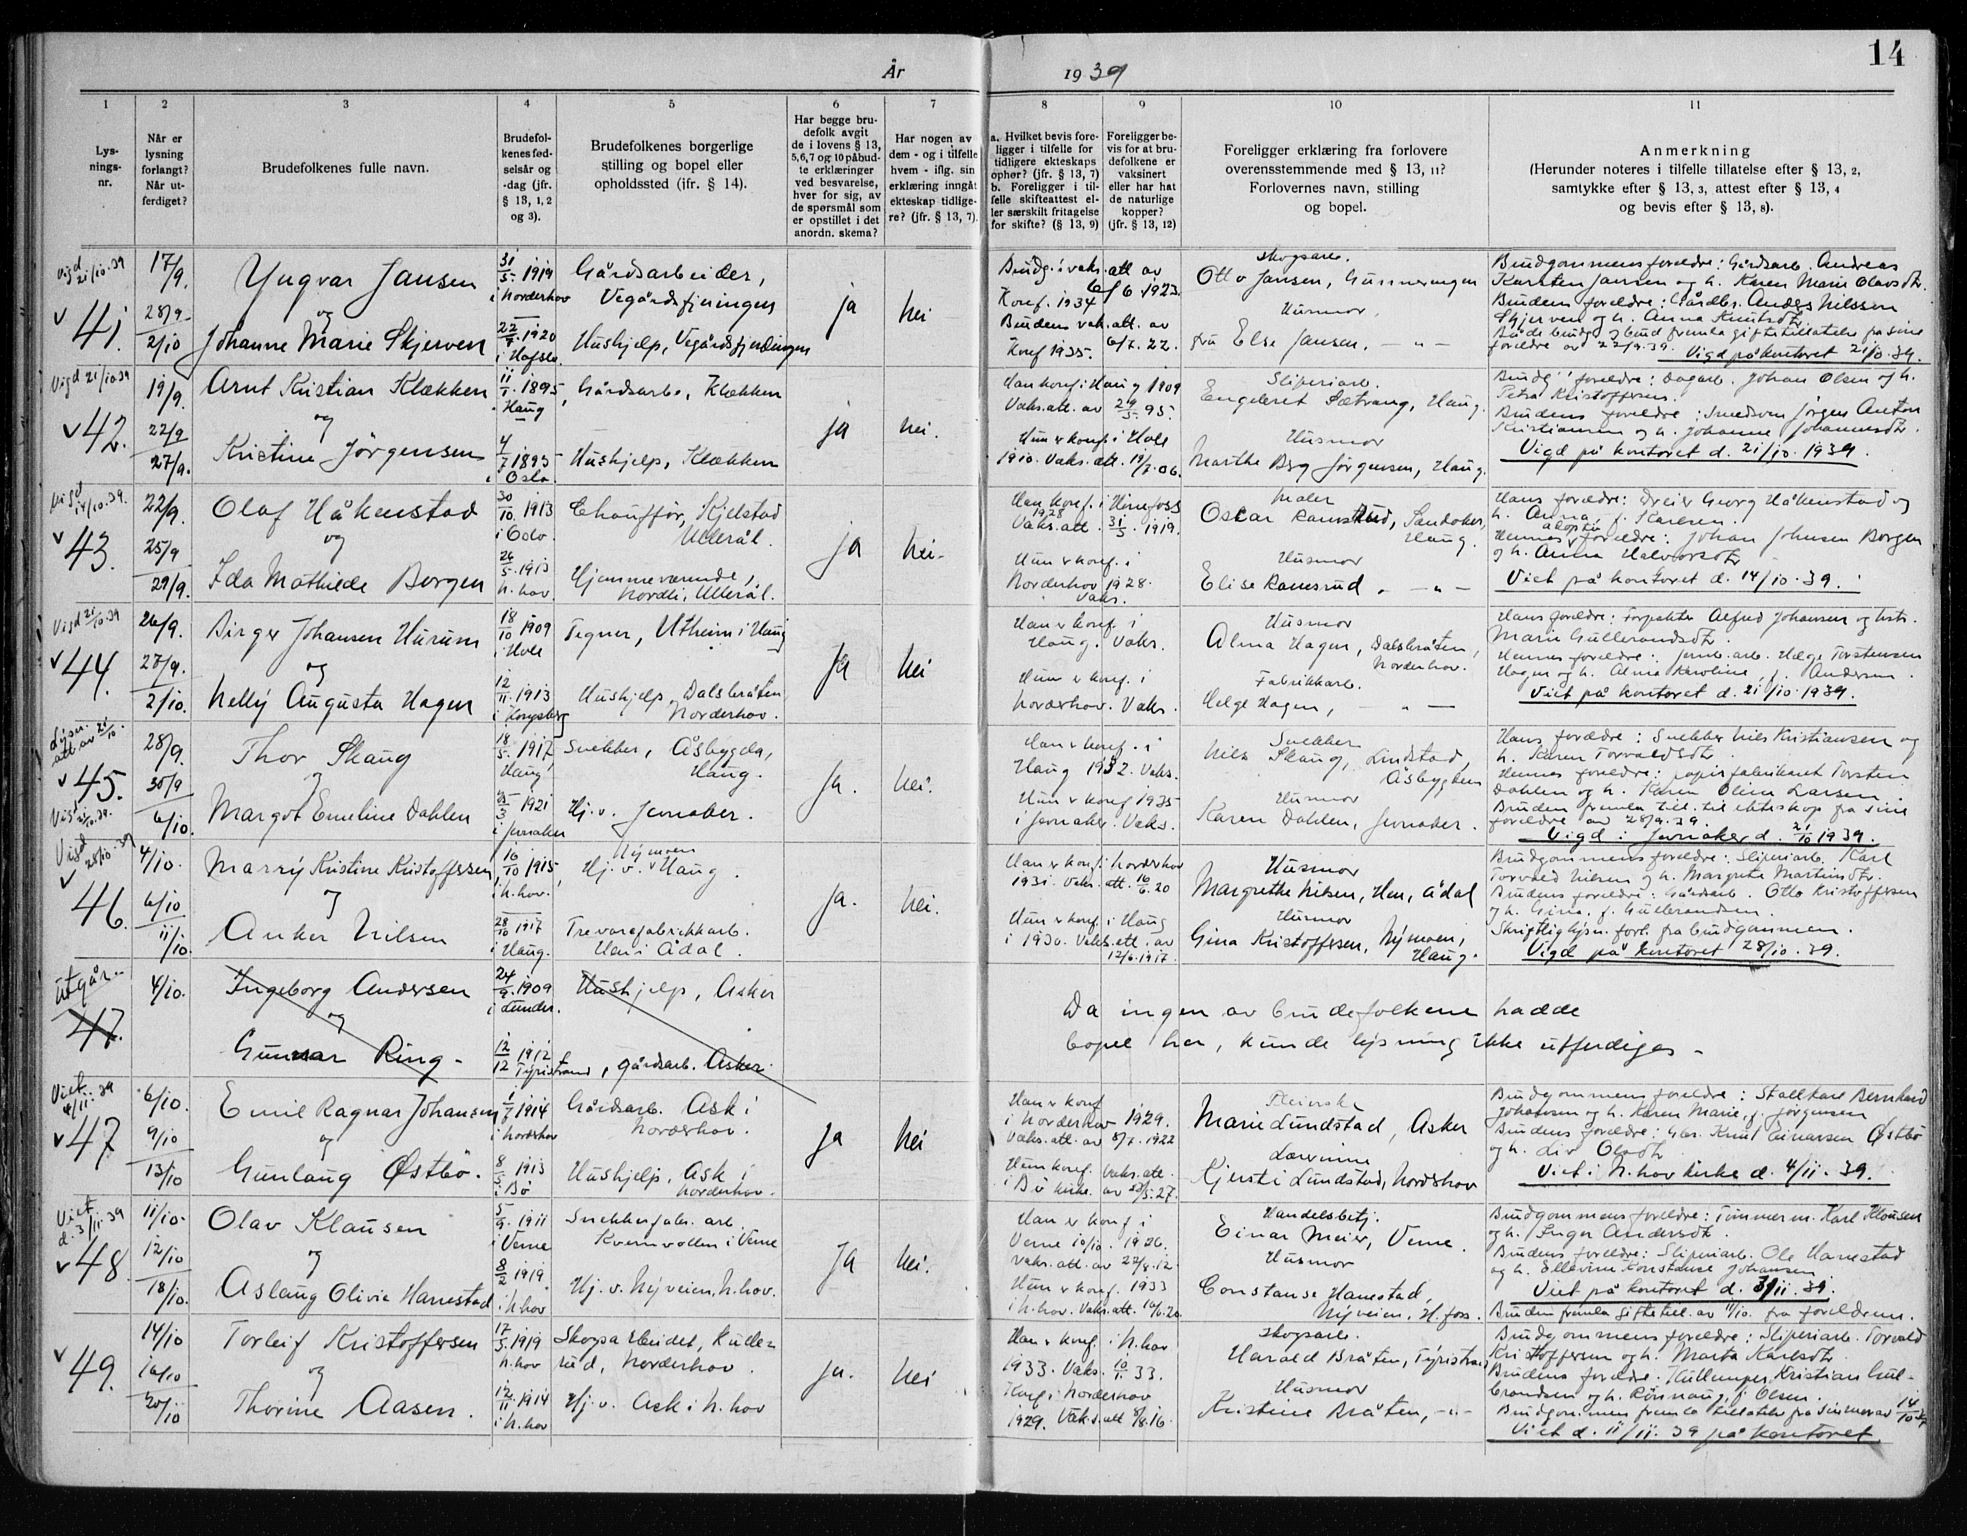 År 1939
14
1
2
3
4
5
6
7
8
9
10
11
Lys-
nings-
nr.
Når er
lysning
forlangt?
Når ut-
ferdiget?
Brudefolkenes fulle navn.
Brudefol-
kenes fød-
selsår og
-dag (jfr.
§ 13, 1, 2
og 3).
Brudefolkenes borgerlige
stilling og bopel eller
opholdssted (jfr. § 14).
Har begge bru-
defolk avgit
de i lovens § 13,
5,6,7 og 10 påbud-
te erklæringer
ved besvarelse,
hver for sig, av
de spørsmål som
er opstillet i det
anordn. skema?
Har nogen av
dem - og i tilfelle
hvem - iflg. sin
erklæring inngåt
ekteskap tidlige-
re? (jfr. § 13, 7).
a. Hvilket bevis fore-
ligger i tilfelle for
tidligere ekteskaps
ophør? (jfr. § 13, 7)
b. Foreligger i til-
felle skifteattest el-
ler særskilt fritagelse
for skifte? (§ 13, 9)
Foreligger be-
vis for at bru-
defolkene er
vaksinert
eller har hat
de naturlige
kopper?
(jfr. § 13, 12)
Foreligger erklæring fra forlovere
overensstemmende med § 13, 11?
Forlovernes navn, stilling
og bopel.
Anmerkning
(Herunder noteres i tilfelle tillatelse efter § 13, 2,
samtykke efter § 13, 3, attest efter § 13, 4
og bevis efter § 13, 8).
Vigd 21/10.39
41.
17/9.
28/9
2/10
Yngvar Jansen
og
Johanne Marie Skjerven
31/5 1919
i Norderhov
1920
Gårdsarbeider,
Vegårdsfjeringen
Hushjelp, Vegårdsfjerdingen
ja
nei
Brudg. i vaks. att av
6/6 1923.
Konf. 1934
Brudens vak. att. av
6/7. 22.
Konf 1935.
Skogsarb.
Otto Jansen,
Husmor,
fru Else Jansen, — „ —
Brudgommens foreldre: Gårdsarb. Andreas
Karsten Jansen og h. Karen Marie Olavsdtr.
Brudens foreldre: Gårdbr. Anders Nilssen
Skjerven og h. Anna Knutsdtr
foreldre av 22/9. 39. Vigd på kontoret 21/10. 39.
Vigd 21/10 39
42.
19/9.
22/9
27/9.
Arnt Kristian Klækken
og
Kristine Jørgensen
1895,
i Haug
4/7 1895
i Oslo.
Gårdsarb., Klækken
Hushjelp, Klækken
ja
nei.
Han konf. i Haug 1909
Vaks. att. av 29/5. 95.
Hun er konf. i Hole
1910. Vaks. att.
Sliperiarb.
Engebret Sætrang, Haug.
Husmor
Marthe Berg Jørgensen, Haug.
Brudg. foreldre: Dagarb. Johan Olsen og h.
Petra Kristoffersen.
Brudens foreldre: Smedsven Jørgen Anton
Kristiansen og h. Johanne Johannesdtr.
Vigd på kontoret d. 21/10. 1939.
Vigd 14/10.39.
43.
22/9.
25/9
29/9.
Olaf Håkenstad
og
Ida Mathilde Borgen
30/10. 1913
i Oslo.
26/5. 1913
N. hov.
Chauffør, Kjelstad
Ullerål.
Hjemmeværende,
Nordli, Ullerål.
ja
nei.
Han konf. i Hønefoss
1928
Vaks. att. 31/5. 1919.
Hun er konf. i
Norderhov 1928.
Vaks.
Maler
Oscar Ramsrud, Sandaker,
Haug.
Husmor
Elise Ramsrud, — „ —
Hans foreldre: Dreier Georg Håkenstad og
h. Anna, f. Karlsen.
Hennes adoptiv foreldre: Johan Johnsen Borgen
og h. Anna Halvorsdtr
Viet på kontoret d. 14/10. 39.
Vigd 21/10.39
44.
26/9.
27/9.
2/10.
Birger Johansen Hurum
og
Nelly Augusta Hagen
18/10 1909
i Hole
12/11. 1913
i Kongsberg
Tegner, Utheim i Haug
Hushjelp, Dalsbråten
Norderhov.
ja
nei
Han er konf. i
Haug. Vaks.
Hun er konf. i
Norderhov. Vaks.
Husmor
Alma Hagen, Dalsbråten,
Norderhov.
Fabrikkarb.
Helge Hagen, — „ —
Hans foreldre: Forpakter Alfred Johansen og hstr.
Marie Gulbrandsdtr.
Hennes foreldre: Jernb. arb. Helge Torstensen
Hagen og h. Alma Karoline, f. Andersen.
Viet på kontoret d. 21/10. 1939.
Lysn.
att av 21/10.
45.
28/9.
30/9
6/10.
Thor Skaug
og
Margot Emeline Dahlen
18/5. 1917
Haug
1921
i Jevnaker
Snekker, Åsbygda,
Haug.
Hj. v. Jevnaker.
ja.
nei.
Han er konf. i
Haug 1932. Vaks.
Hun er konf 1935
i Jevnaker. Vaks.
Snekker
Nils Skaug, Lindstad,
Åsbygden
Husmor
Karen Dahlen, Jevnaker.
Hans foreldre: Snekker Nils Kristiansen og
h. Karen Torvaldsdtr.
Hennes foreldre: papirfabrikant Torsten
Dahlen og h. Karen Oline Larsen.
Bruden fremla till. til ekteskap fra sine
foreldre av 28/9. 39.
Vigd i Jevnaker d. 21/10 1939.
Vigd 28/10.39
46.
4/10.
6/10
11/10.
Marry Kristine Kristoffersen
og
Anker Nilsen
16/10 1915,
i N. hov.
28/10 1917
i Haug.
Nymoen
Hj. v. Haug.
Trevarefabrikkarb.
Hen i Ådal.
ja.
nei.
Han er konf. i Norderhov
1931. Vaks. att. 20
Hun er konf. i Haug
i 1930. Vaks. att. av
12/6. 1917.
Husmor
Margrethe Nilsen, Hen, Ådal
Husmor
Gina Kristoffersen, Nymoen,
Haug.
Brudgommens foreldre: Sliperiarb. Karl
Torvald Nilsen og h. Margrete Martinsdtr.
Brudens foreldre: Gårdarb. Otto Kristoffersen
og h. Gina, f. Gulbrandsen.
Skriftlig lysn. forl. fra brudgommen.
Vigd på kontoret 28/10. 39.
Utgår.
47.
4/10.
Ingeborg Andersen
og
Gunnar Ring.
24/9. 1909
i Lunder.
12/12 1912
Tyristrand
Hushjelp, Asker
gårdsarb. Asker.
Da ingen av brudefolkene hadde
bopel her, kunde lysning ikke utferdiges.
Viet 4/11.39
47.
6/10.
9/10
13/10
Emil Ragnar Johansen
og
Gunlaug Østbö.
1914
i Norderhov
8/5 1913
i Bö
Gårdsarb. Ask i
Norderhov.
Hushjelp, Ask i
Norderhov.
ja
nei
Han er konf
i Norderhov 1929.
Vaks. att. av 8/7. 1922
Hun konf. Vaks. att.
i Bö kirke.
Marie Lundstad, Asker
Lærerinne
Kjersti Lundstad, Norderhov
Brudgommens foreldre: Stallkar Bernhard
Johansen og h. Karen Marie, f. Jørgensen
Brudens foreldre: Gbr. Knut Einarsen Østbö
og h. Liv Olsdtr
Viet i N. hov kirke d. 4/11. 39.
Viet
d. 3/11.39
48.
11/10.
12/10
18/10.
Olav Klausen
og
Aslaug Olivia Hanestad
5/9. 1911
i Verne
1919.
i N. hov
Snekkerfabr. arb.
Kvernvollen i Verne
Hj. v. Nyveien, N. hov.
ja
nei.
Han er konf i
Verne 10/10. 1926.
vaks. att. av 22/8. 12.
Hun er konf. 1933
i N. hov. Vaks. att.
Handelsbetj.
Einar Meier, Verne.
Husmor
Constanse Hanestad,
Nyveien, H. foss.
Brudgommens foreldre: Tømmerm. Karl Klausen
og h. Inger Andersdtr
Brudens foreldre: Sliperiarb. Ole Hanestad
og h. Ellevine Konstanse Johansen
Viet på kontoret d. 3/11. 39.
Bruden fremla giftetill. av 11/10. fra foreldrene.
49.
14/10
16/10
20/10
Torleif Kristoffersen
og
Thorine Aasen.
17/5. 1919
N. hov
12/11. 1914
i N. hov
Skogsarbeidet, Kuller-
rud, Norderhov.
Hj. v. Ask i N. hov
ja.
nei
Han er konf. i N. hov
1933. Vaks. 33.
Konf i Norderhov
1929. Vaks. att 16.
Skogsarb.
Harald Bråten, Tyristrand
Husmor
Kristine Bråten, — „ —
Brudgommens foreldre: Sliperiarb. Torvald
Kristoffersen og h. Marta Karlsdtr.
Brudens foreldre: Kristian Gul-
brandsen og h. Rønnaug, f. Olsen.
Brudgommen fremla tillatelse fra sin mor av 14/10 39
Viet d. 11/11. 39 på kontoret